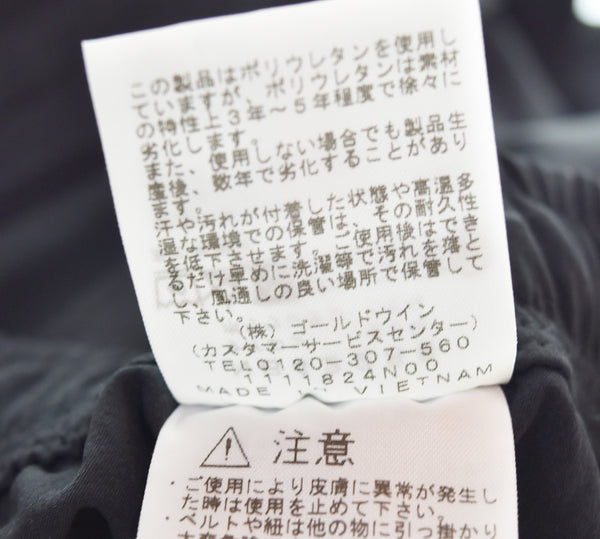 この製品はポリウレタンを使用
していますが、ポリウレタンは素材
の特性上3年～5年程度で徐々に
劣化します。
また、使用しない場合でも製品生
産後、数年で劣化することがあり
ます。
汗や汚れが付着した状態や高温多
湿な環境での保管は、その耐久性
を低下させます。ご使用後はできる
だけ早めに洗濯等で汚れを落と
し、風通しの良い場所で保管して
下さい。
(株)ゴールドウイン
(カスタマーサービスセンター)
TEL0120-307-560
1111824N00
MADE IN VIETNAM
注意
・ご使用により皮膚に異常が発生し
た時は使用を止めて下さい。
・ベルトや紐は他の物に引っ掛かり